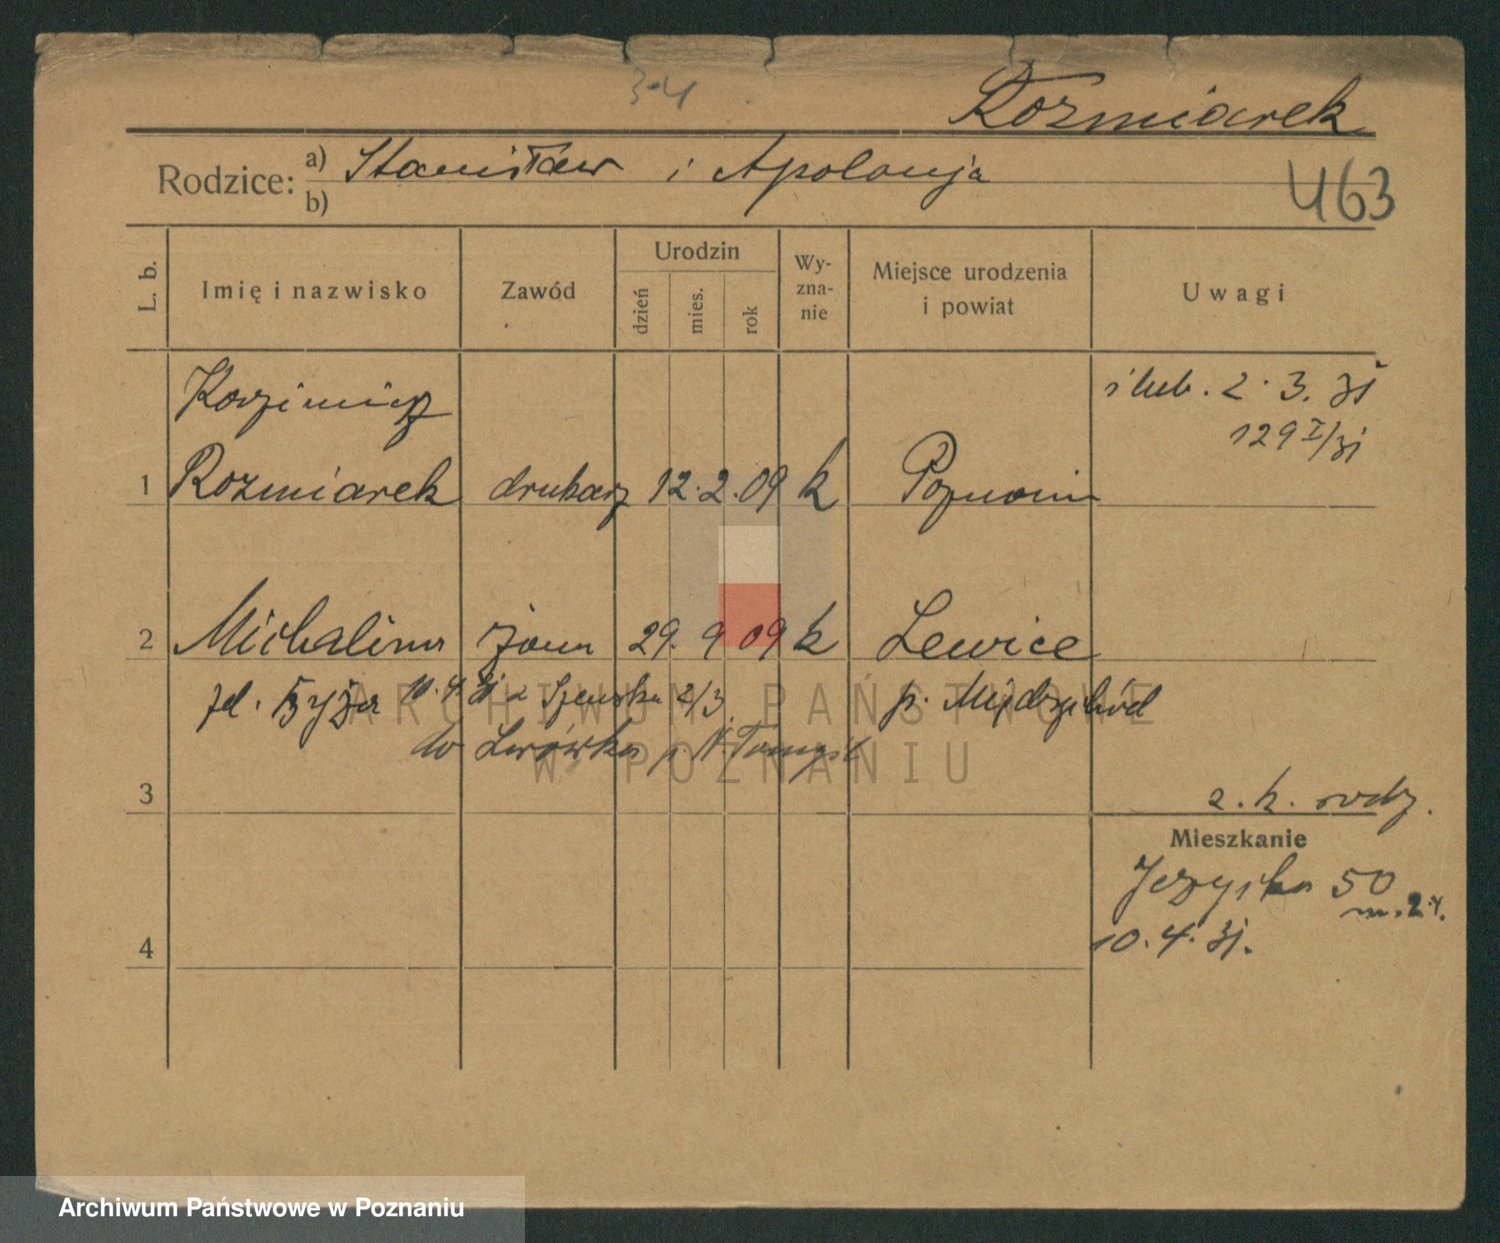 34
Rozmiarek
Rodzice: a) Stanisław i Apolonja
b)
463
L. b.
Imię i nazwisko
Zawód
Urodzin
dzień
mies.
rok
Wy-
zna-
nie
Miejsce urodzenia
i powiat
Uwagi
Kazimierz
ślub. 2.3.31
129 I/31
1 Rozmiarek drukarz 12.2.09 k Poznań
2 Michalina żona 29. 9 09 k Lewice
10.4.31 z 2/3
p. Międzychód
w Lwówka p N Tomyśl
3
z. k. rodz.
Mieszkanie
50
m. 24.
10.4.31.
4
ARCHIWUM PAŃSTWOWE
W POZNANIU
Archiwum Państwowe w Poznaniu